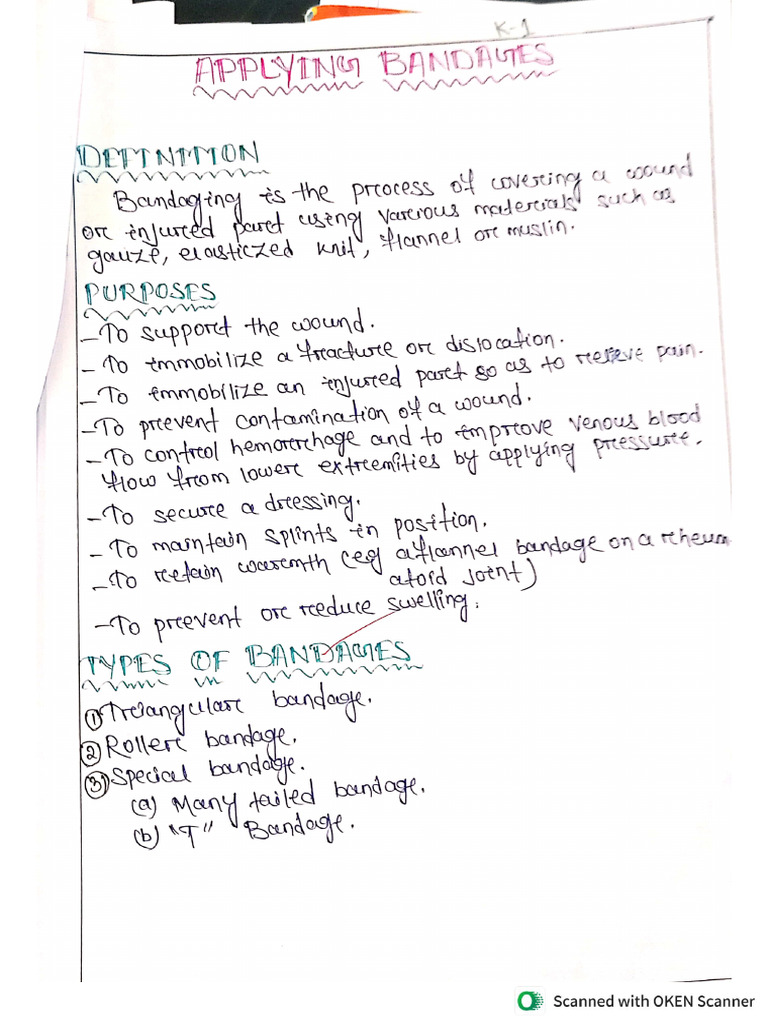 K-1
APPLYING BANDAGES
DEFINITION
Bandaging is the process of covering a wound
or injured part using various materials such as
gauze, elasticzed knit, flannel or muslin.
PURPOSES
- To support the wound.
- To immobilize a fracture or dislocation.
- To immobilize an injured part so as to relieve pain.
- To prevent contamination of a wound.
- To control hemorrhage and to improve venous blood
flow from lower extremities by applying pressure.
- To secure a dressing.
- To maintain splints in position.
- To retain warmth (eg a flannel bandage on a rheum
atoid joint)
- To prevent or reduce swelling.
TYPES OF BANDAGES
① Triangular bandage.
② Roller bandage.
③ Special bandage.
(a) Many tailed bandage.
(b) "T" Bandage.
Scanned with OKEN Scanner